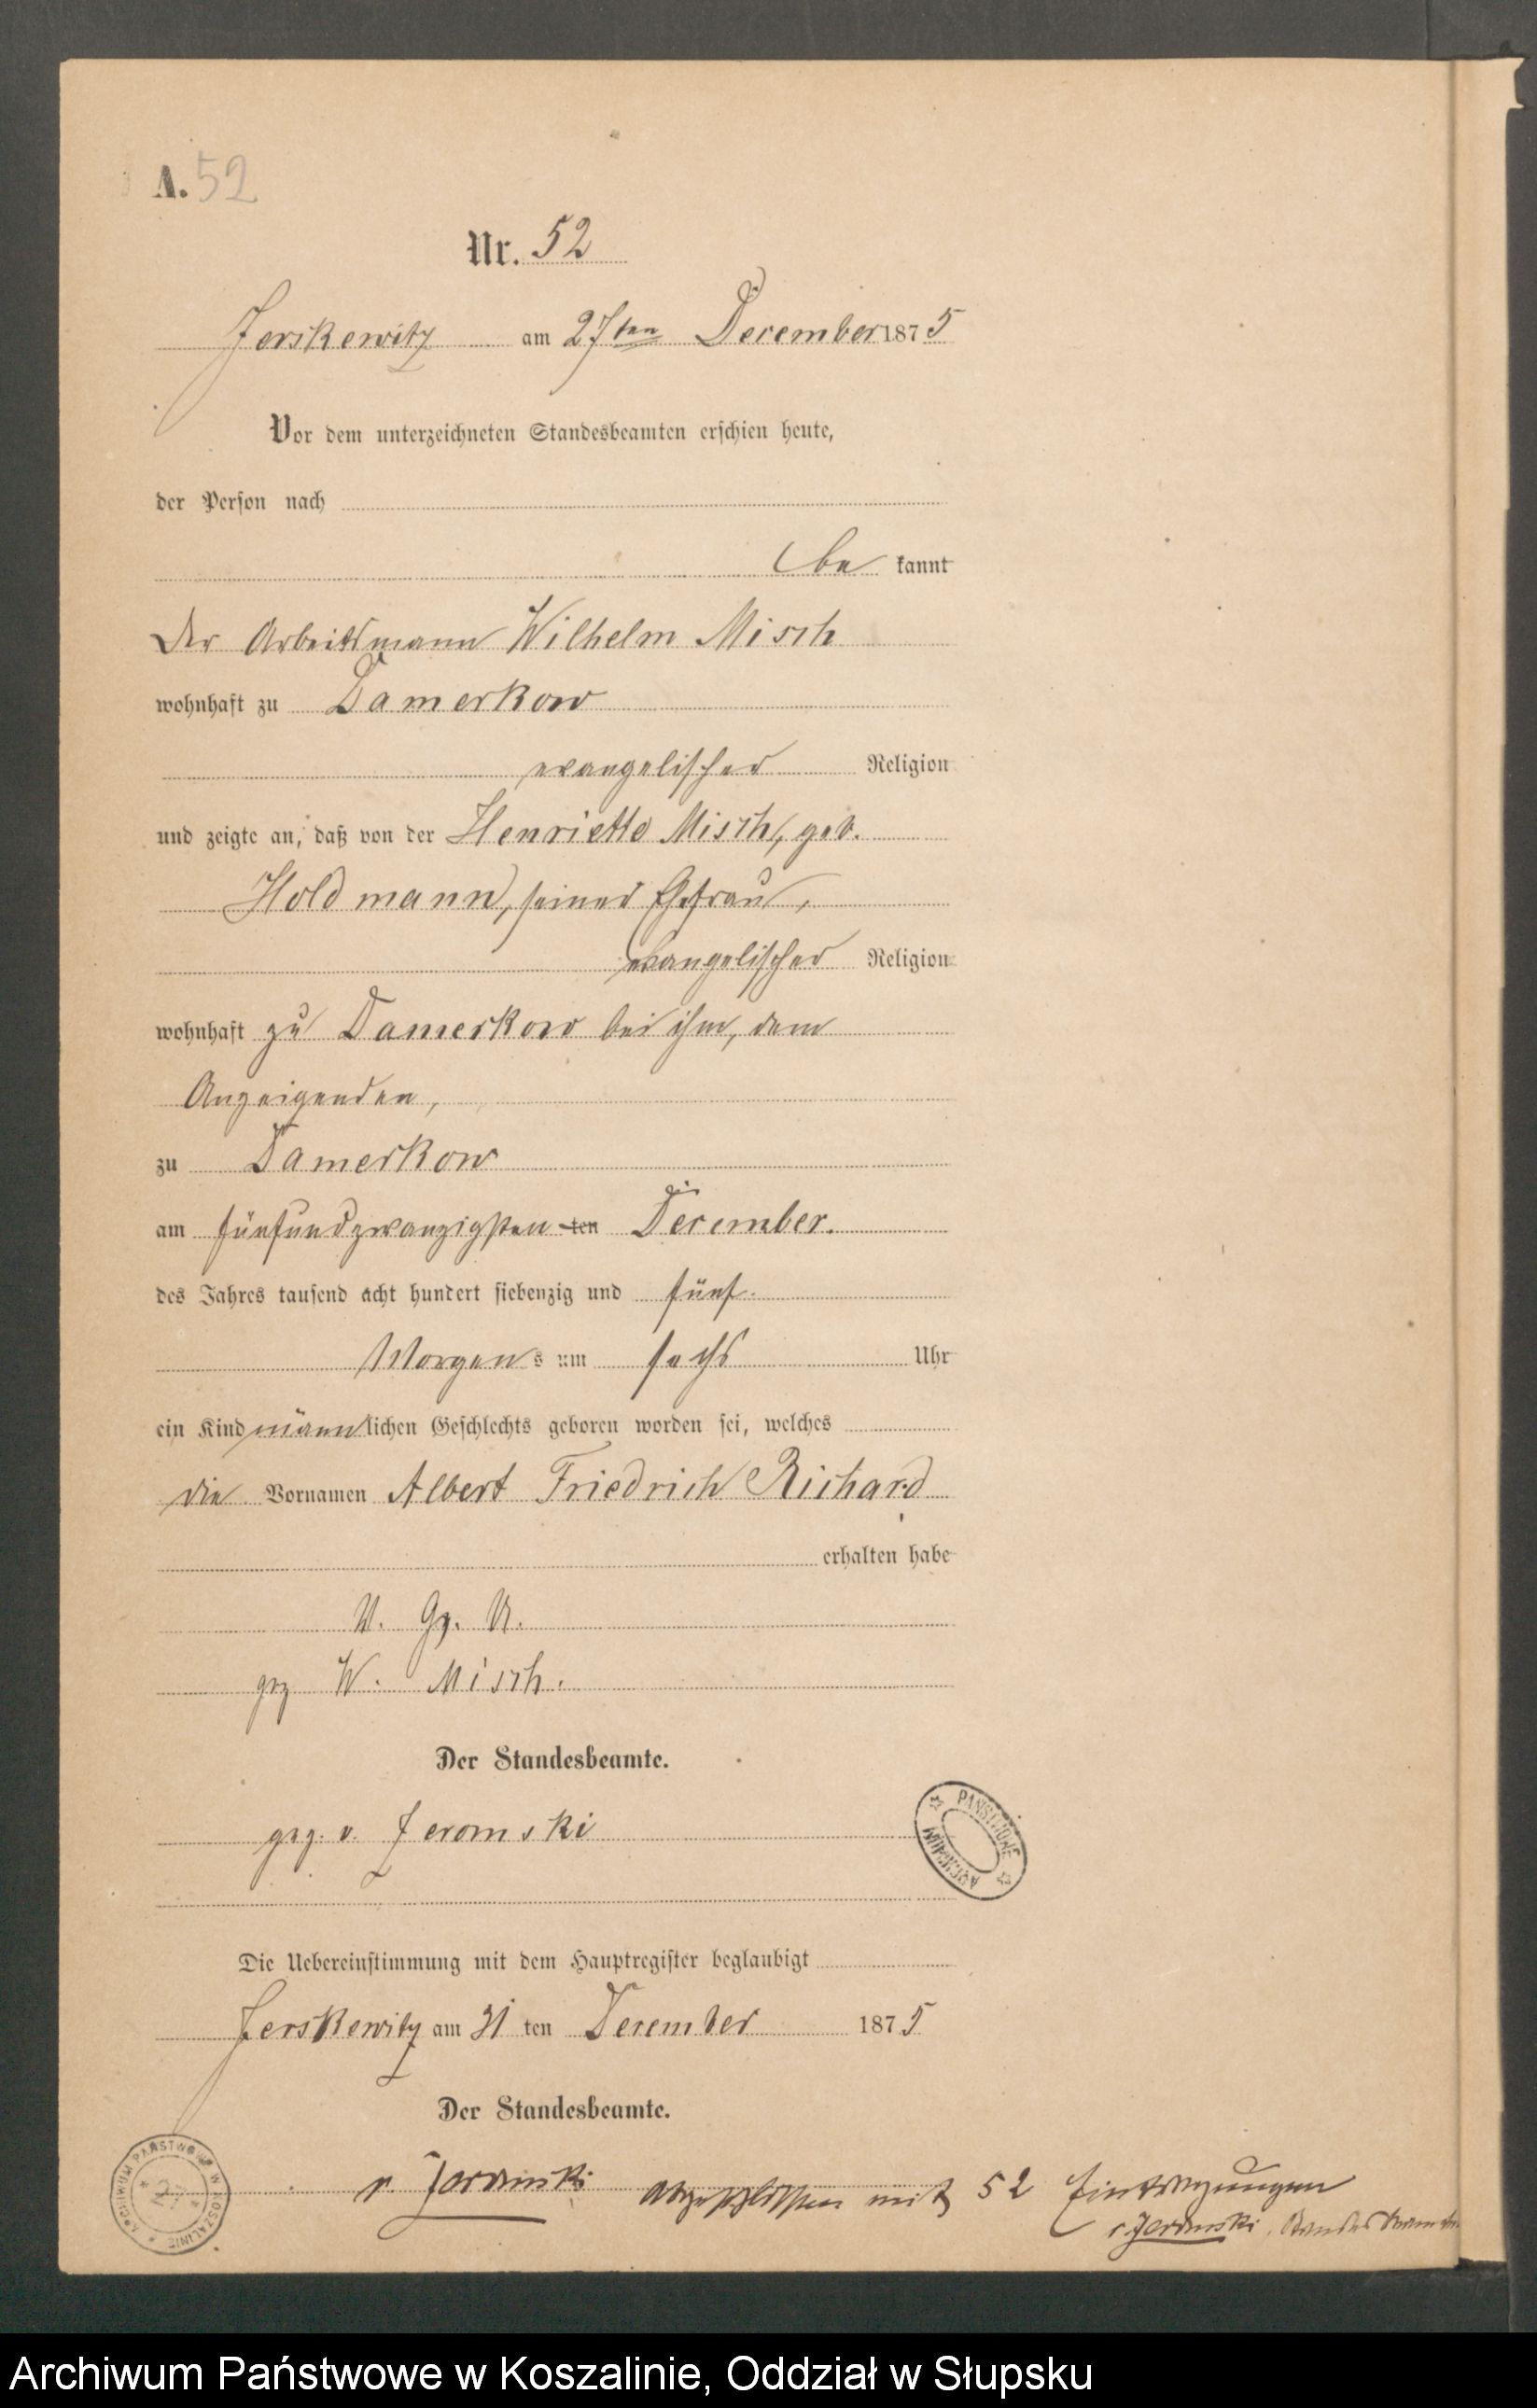 A. 52
Nr. 52
Jerskewitz am 27ten December 1875
Vor dem unterzeichneten Standesbeamten erschien heute,
der Person nach
be kannt
der Arbeitsmann Wilhelm Misch
wohnhaft zu Damerkow
evangelischer Religion
und zeigte an, daß von der Henriette Misch, geb.
Holdmann, seiner Ehefrau,
evangelischer Religion
wohnhaft zu Damerkow bei ihm, dem
Anzeigenden,
zu Damerkow
am fünfundzwanzigsten ten December.
des Jahres tausend acht hundert siebenzig und fünf.
Morgens um sechs Uhr
ein Kind männlichen Geschlechts geboren worden sei, welches
die Vornamen Albert Friedrich Richard
erhalten habe
V. G. U.
gez W. Misch.
Der Standesbeamte.
gez. v. Jeromski
Die Uebereinstimmung mit dem Hauptregister beglaubigt
Jerskewitz am 31 ten December 1875
Der Standesbeamte.
v. Jeromski
abgeschlossen mit 52 Eintragungen
v. Jeromski, Standesbeamter
PAŃSTWOWE ARCHIWUM
ARCHIWUM PAŃSTWOWE W KOSZALINIE
27
Archiwum Państwowe w Koszalinie, Oddział w Słupsku